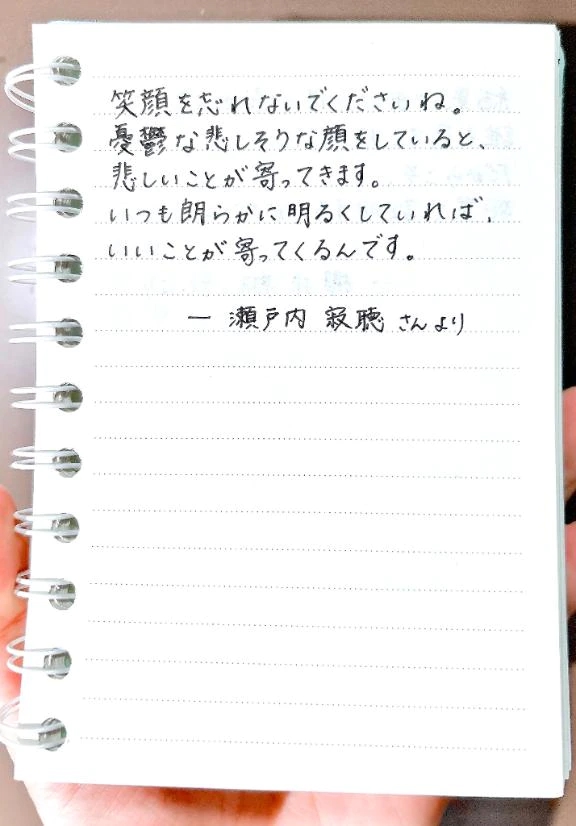 笑顔を忘れないでくださいね。
憂鬱な悲しそうな顔をしていると、
悲しいことが寄ってきます。
いつも朗らかに明るくしていれば、
いいことが寄ってくるんです。
― 瀬戸内 寂聴 さんより